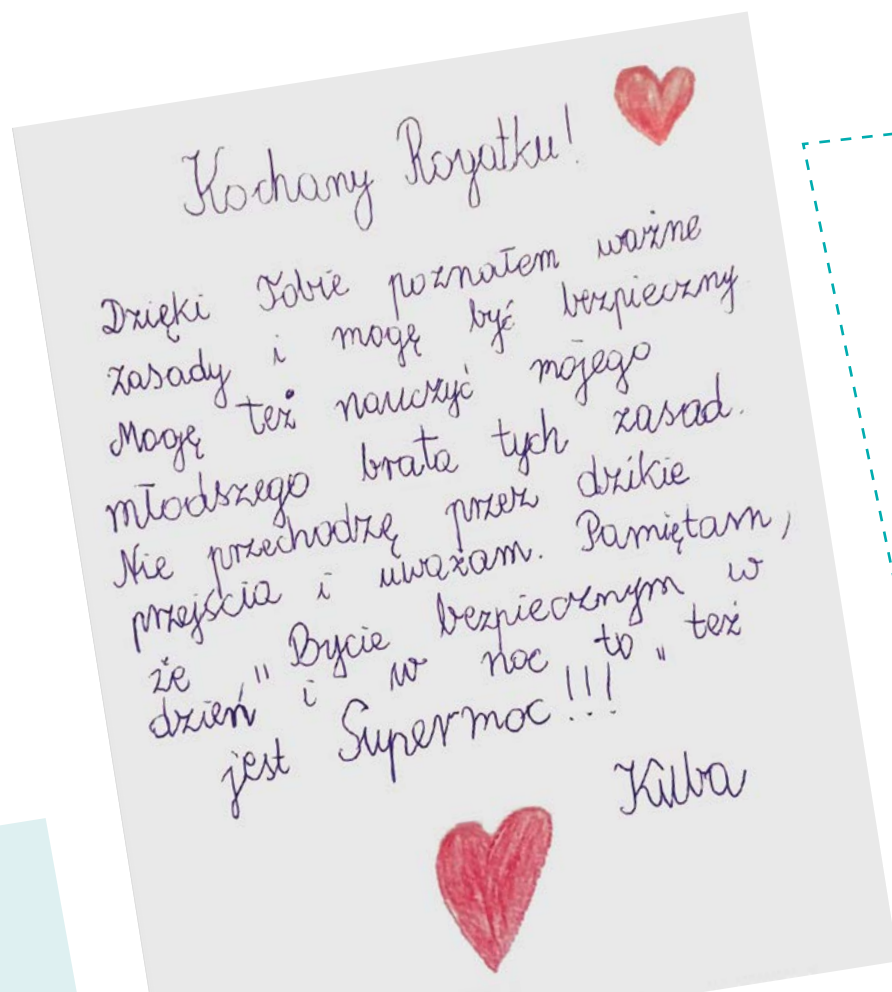 Kochany Rogatku!
Dzięki Tobie poznałem ważne
zasady i mogę być bezpieczny
Mogę też nauczyć mojego
młodszego brata tych zasad.
Nie przechodzę przez dzikie
przejścia i uważam. Pamiętam,
że „Bycie bezpiecznym w
dzień i w noc to" też
jest Supermoc!!!
Kuba